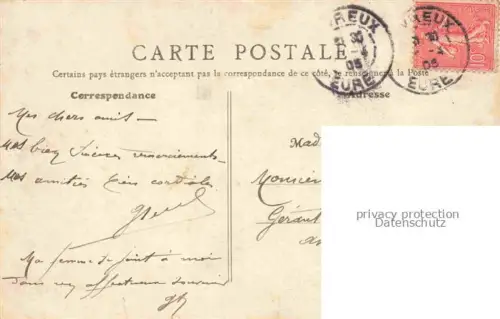 VREUX
30
-4
05
EURE
VREUX
30
-4
05
EURE
10
CARTE POSTALE
Certains pays étrangers n'acceptant pas la correspondance de ce côté, se renseigner à la Poste
Correspondance
Adresse
Mes chers amis –
Mes bien sincères remerciements –
Mes amitiés bien cordiales
Mad
Monsieu
Gérant
Ma femme se joint à moi
dans un affectueux souvenir
privacy protection
Datenschutz